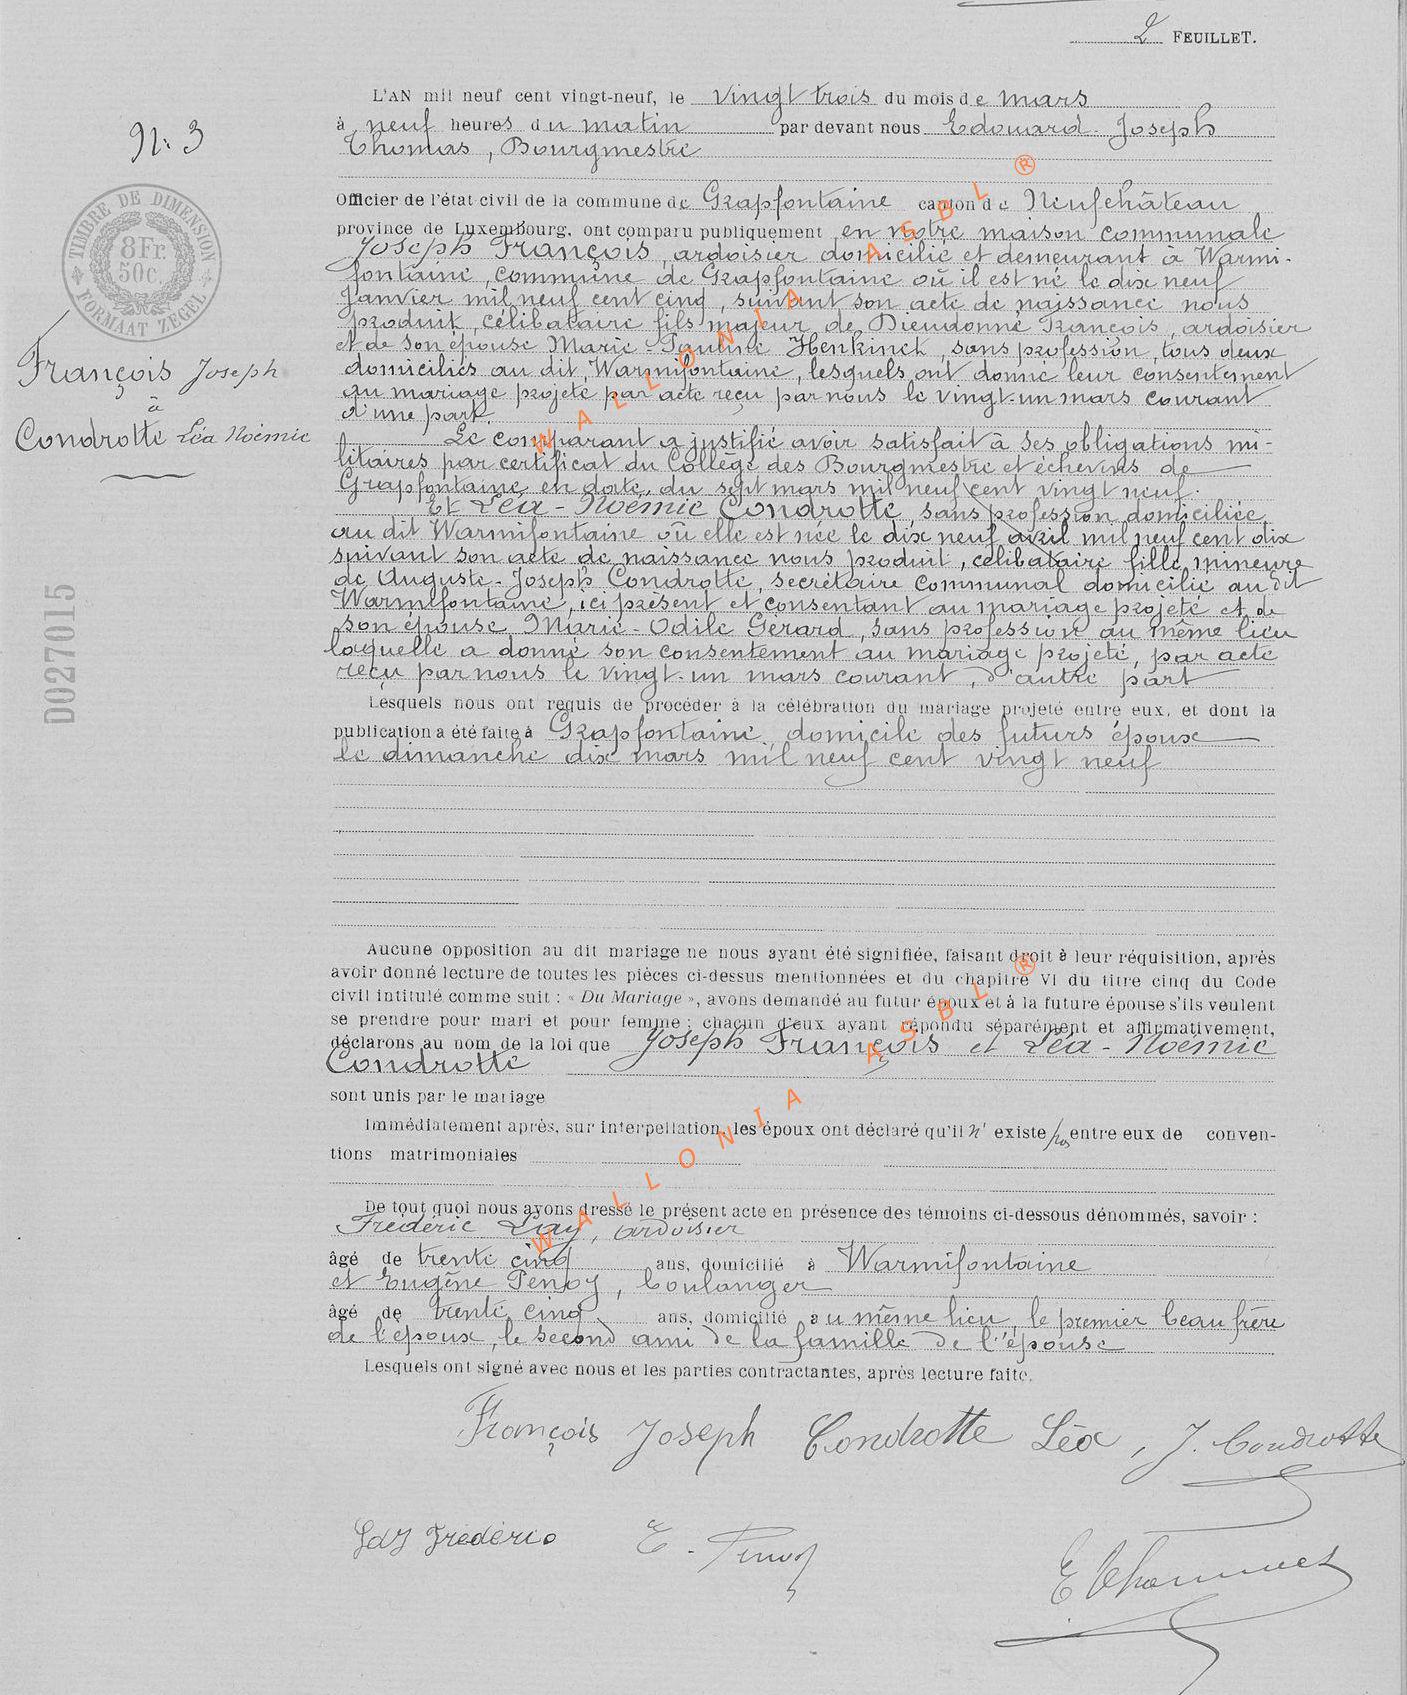 2 FEUILLET.
L'AN mil neuf cent vingt-neuf, le vingt trois du mois de mars
à neuf heures du matin par devant nous Edouard-Joseph
Thomas, Bourgmestre
Officier de l'état civil de la commune de Grapfontaine canton de Neufchâteau
province de Luxembourg, ont comparu publiquement en notre maison communale
Joseph François, ardoisier domicilié et demeurant à Warmi-
fontaine, commune de Grapfontaine où il est né le dix neuf
Janvier mil neuf cent cinq, suivant son acte de naissance nous
produit, célibataire fils majeur de Dieudonné François, ardoisier
et de son épouse Marie-Pauline Henkinet, sans profession, tous deux
domiciliés au dit Warmifontaine, lesquels ont donné leur consentement
au mariage projeté par acte reçu par nous le vingt-un mars courant
d'une part.
Le comparant a justifié avoir satisfait à ses obligations mi-
litaires par certificat du Collège des Bourgmestre et échevins de
Grapfontaine en date du sept mars mil neuf cent vingt neuf.
Et Léa-Noémie Condrotte, sans profession domiciliée
au dit Warmifontaine où elle est née le dix neuf avril mil neuf cent dix
suivant son acte de naissance nous produit, célibataire fille mineure
de Auguste-Joseph Condrotte, secrétaire communal domicilié au dit
Warmifontaine, ici présent et consentant au mariage projeté et de
son épouse Marie-Odile Gérard, sans profession au même lieu
laquelle a donné son consentement au mariage projeté, par acte
reçu par nous le vingt-un mars courant, d'autre part
Lesquels nous ont requis de procéder à la célébration du mariage projeté entre eux, et dont la
publication a été faite à Grapfontaine, domicile des futurs époux
le dimanche dix mars mil neuf cent vingt neuf
Aucune opposition au dit mariage ne nous ayant été signifiée, faisant droit à leur réquisition, après
avoir donné lecture de toutes les pièces ci-dessus mentionnées et du chapitre VI du titre cinq du Code
civil intitulé comme suit : « Du Mariage », avons demandé au futur époux et à la future épouse s'ils veulent
se prendre pour mari et pour femme ; chacun d'eux ayant répondu séparément et affirmativement,
déclarons au nom de la loi que Joseph François et Léa-Noémie
Condrotte
sont unis par le mariage
Immédiatement après, sur interpellation, les époux ont déclaré qu'il n'existe pas entre eux de conven-
tions matrimoniales
De tout quoi nous avons dressé le présent acte en présence des témoins ci-dessous dénommés, savoir :
Frédéric Gay, ardoisier
âgé de trente cinq ans, domicilié à Warmifontaine
et Eugène Penoy, boulanger
âgé de trente cinq ans, domicilié au même lieu, le premier beau frère
de l'époux, le second ami de la famille de l'épouse
Lesquels ont signé avec nous et les parties contractantes, après lecture faite.
François Joseph Condrotte Léa, J. Condrotte
Gay Frédéric E. Penoy
E Thomas
N: 3
TIMBRE DE DIMENSION
8 Fr.
50 C.
FORMAAT ZEGEL
François Joseph
à
Condrotte Léa Noémie
D027015
WALLONIA ASBL ®
WALLONIA ASBL ®